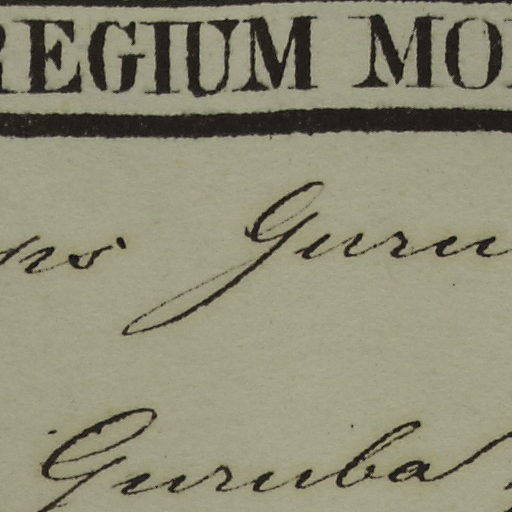 REGIUM MO
ns Guru
Guruba